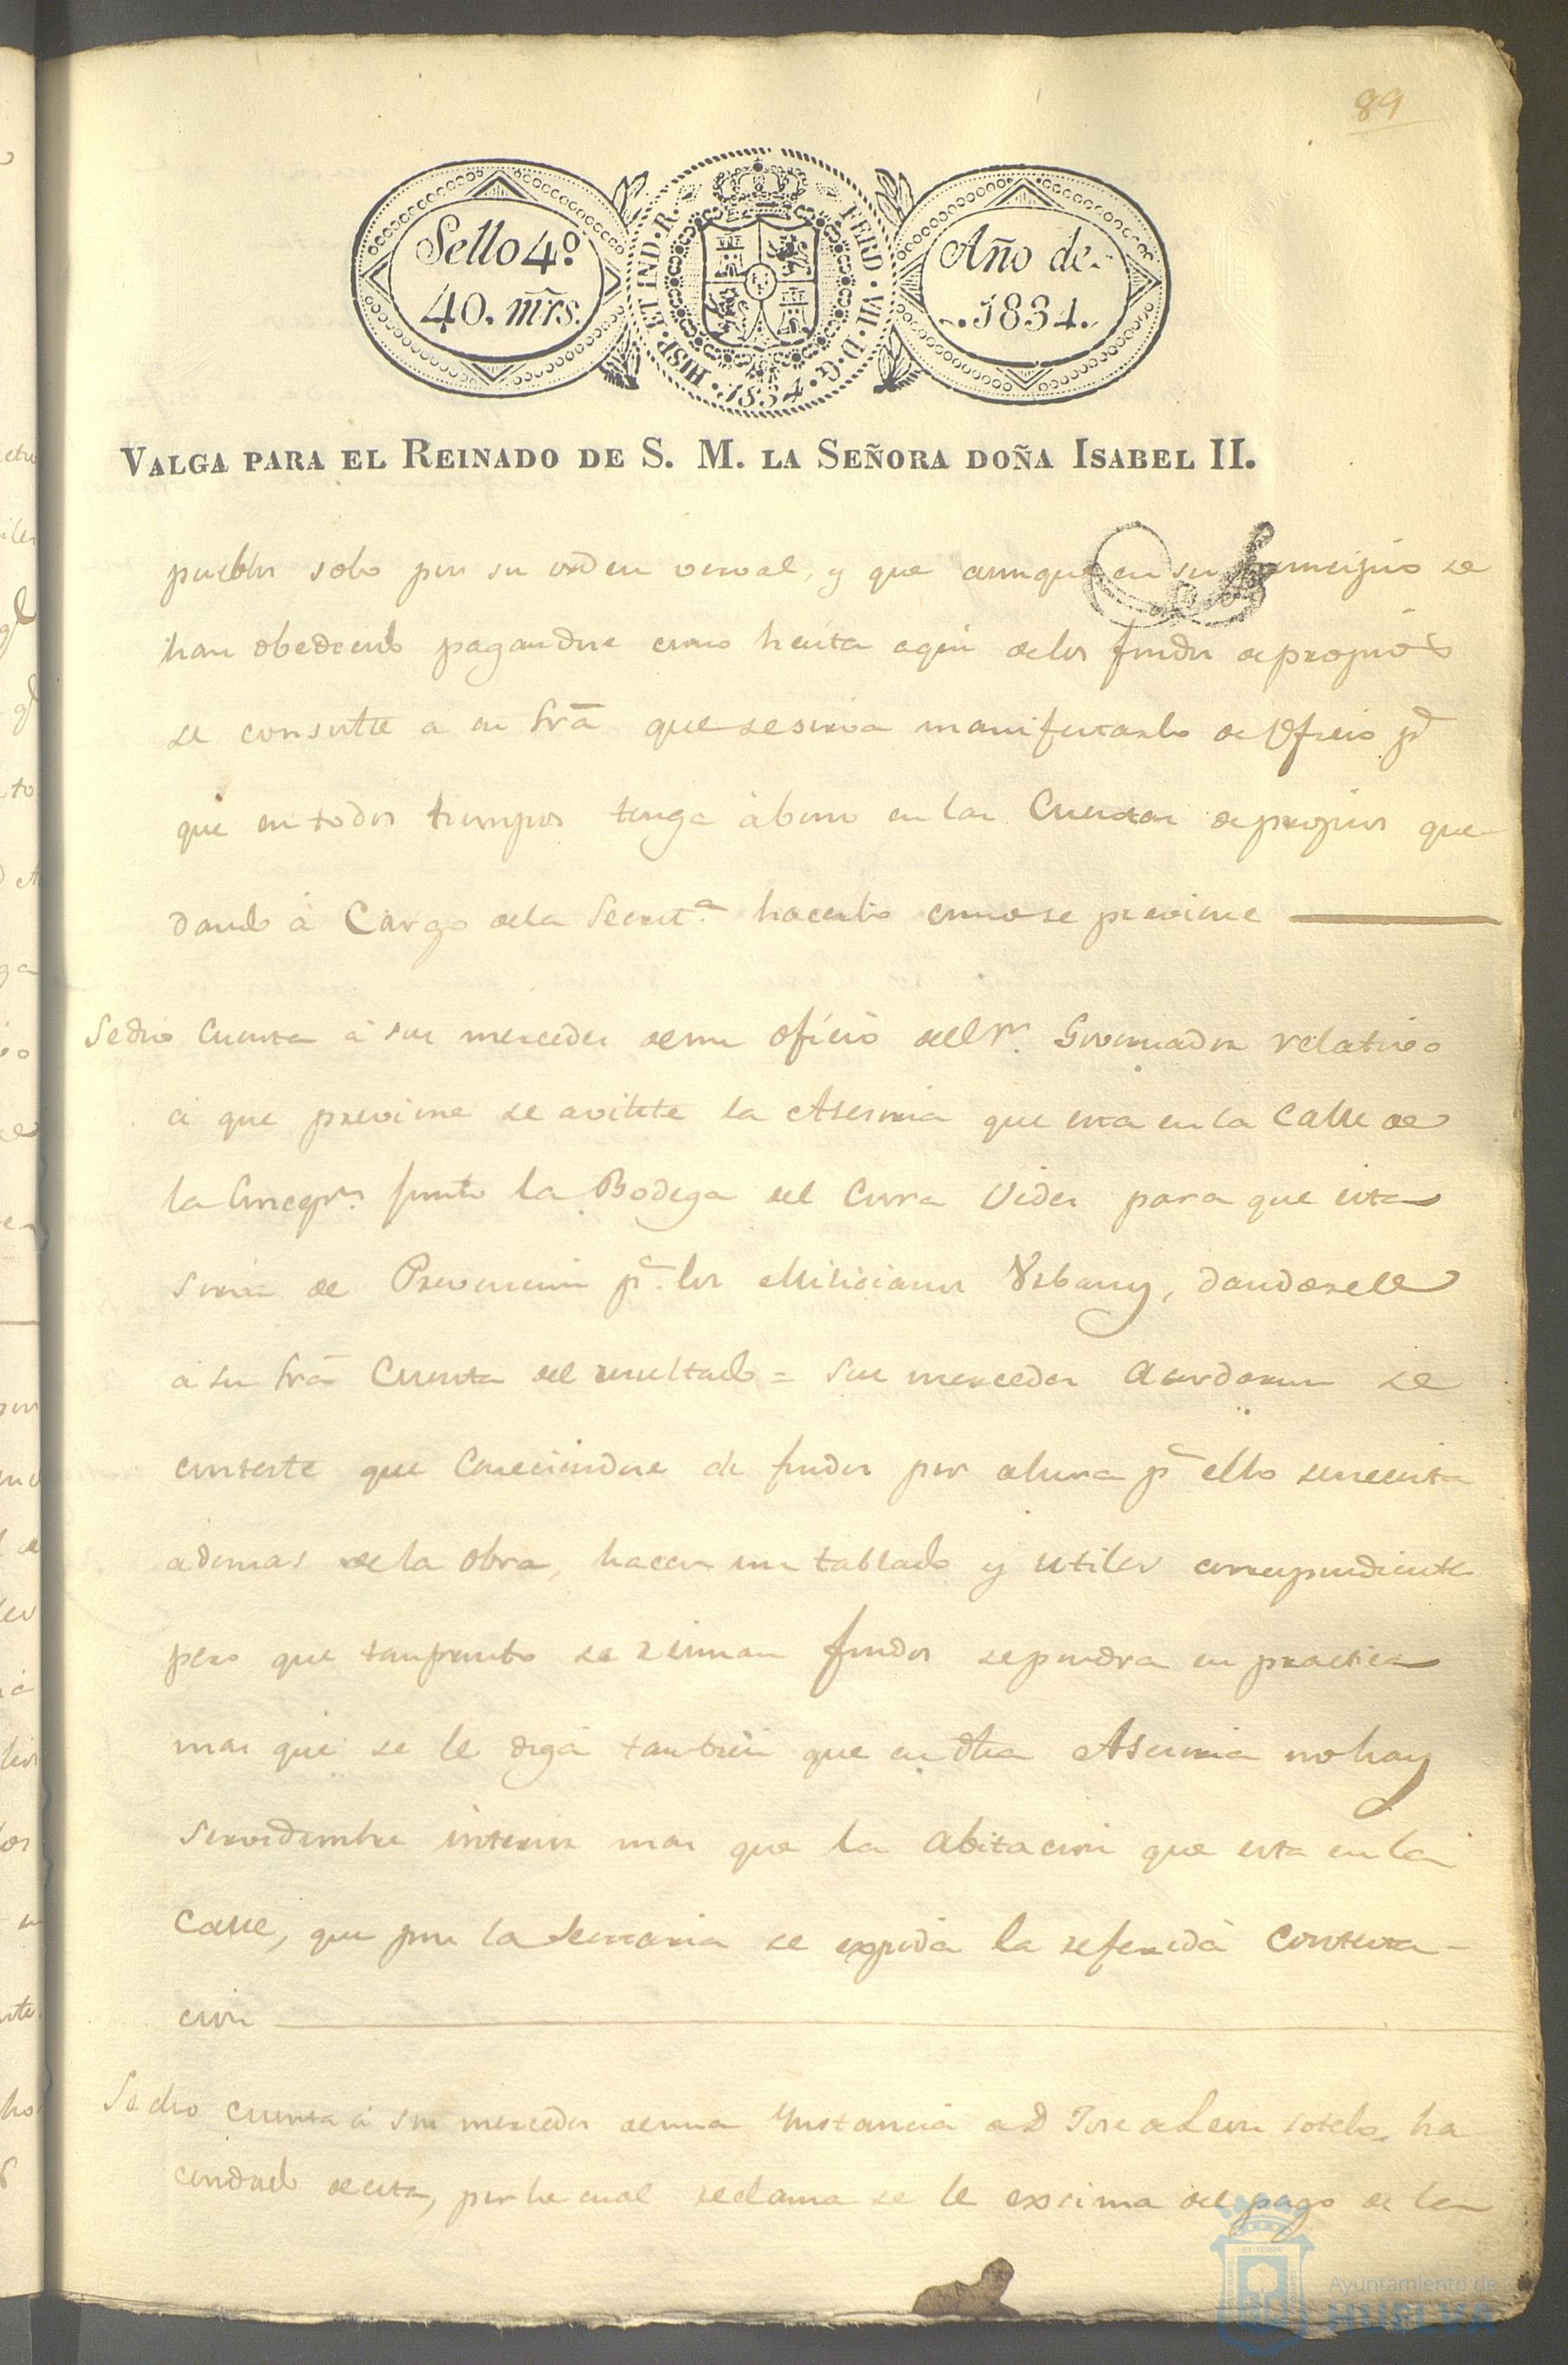 89
Sello 4º
40. mrs.
HISP. ET IND. R. FERD. VII. D. G. 1834.
Año de
1834.
VALGA PARA EL REINADO DE S. M. LA SEÑORA DOÑA ISABEL II.
pueblos solo por su orden verval, y que aunque en su principio se
han obedecido pagandose como hasta aqui delos fondos depropios
se consulte a su Srã que sesirva manifestarlo de Oficio pª
que en todos tiempos tenga àbono en las Cuentas depropios que
dando à Cargo dela Secretª hacerlo como se previene
Sedio Cuenta à sus mercedes deun oficio del Sr. Governador relativo
à que previene se avilite la Asesoria que esta en la Calle de
la Concepn junto la Bodega del Cura Vides para que esta
sirva de Prevencion pª los Milicianos Urbanos, dandosele
a su Srã Cuenta del resultado = Sus mercedes Acordaron se
conteste que Careciendose de fondos por ahora pª ello senecesita
ademas dela obra, hacer un tablado y utiles correspondientes
pero que tanpronto se reunan fondos sepondra en practica
mas que se le diga tambien que en dha Asesoria no hay
servidumbre interior mas que la abitacion que esta en la
Calle, que por la Secretaria se expida la referida Contesta-
cion
Se dio Cuenta à sus mercedes deuna Ynstancia de D Jose de Leon Sotelo, ha
cendado deesta, por la cual reclama se le exsima del pago de las
Ayuntamiento de
HUELVA